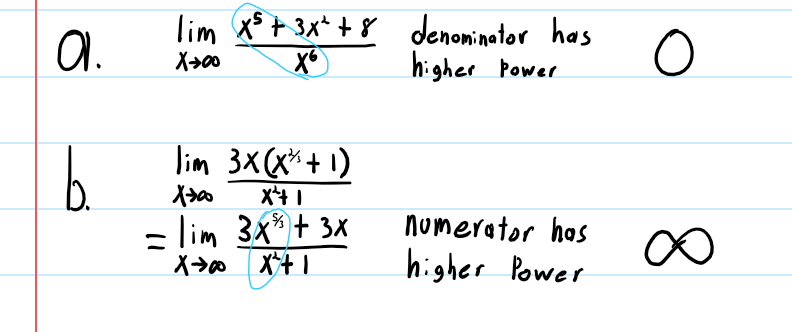 a. lim x→∞ (x⁵ + 3x² + 8)/x⁶ denominator has higher power 0
b. lim x→∞ 3x(x^(2/3) + 1)/(x²+1)
= lim x→∞ (3x^(5/3) + 3x)/(x²+1) numerator has higher power ∞